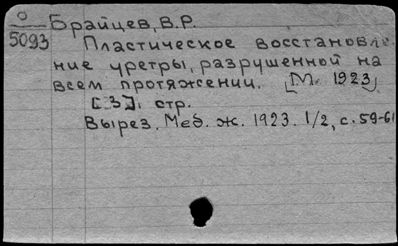 О
5093
Брайцев, В.Р.
Пластическое восстановле-
ние уретры, разрушенной на
всем протяжении. [М. 1923]
[3] стр.
Вырез. Мед. ж. 1923. 1/2, с. 59-61